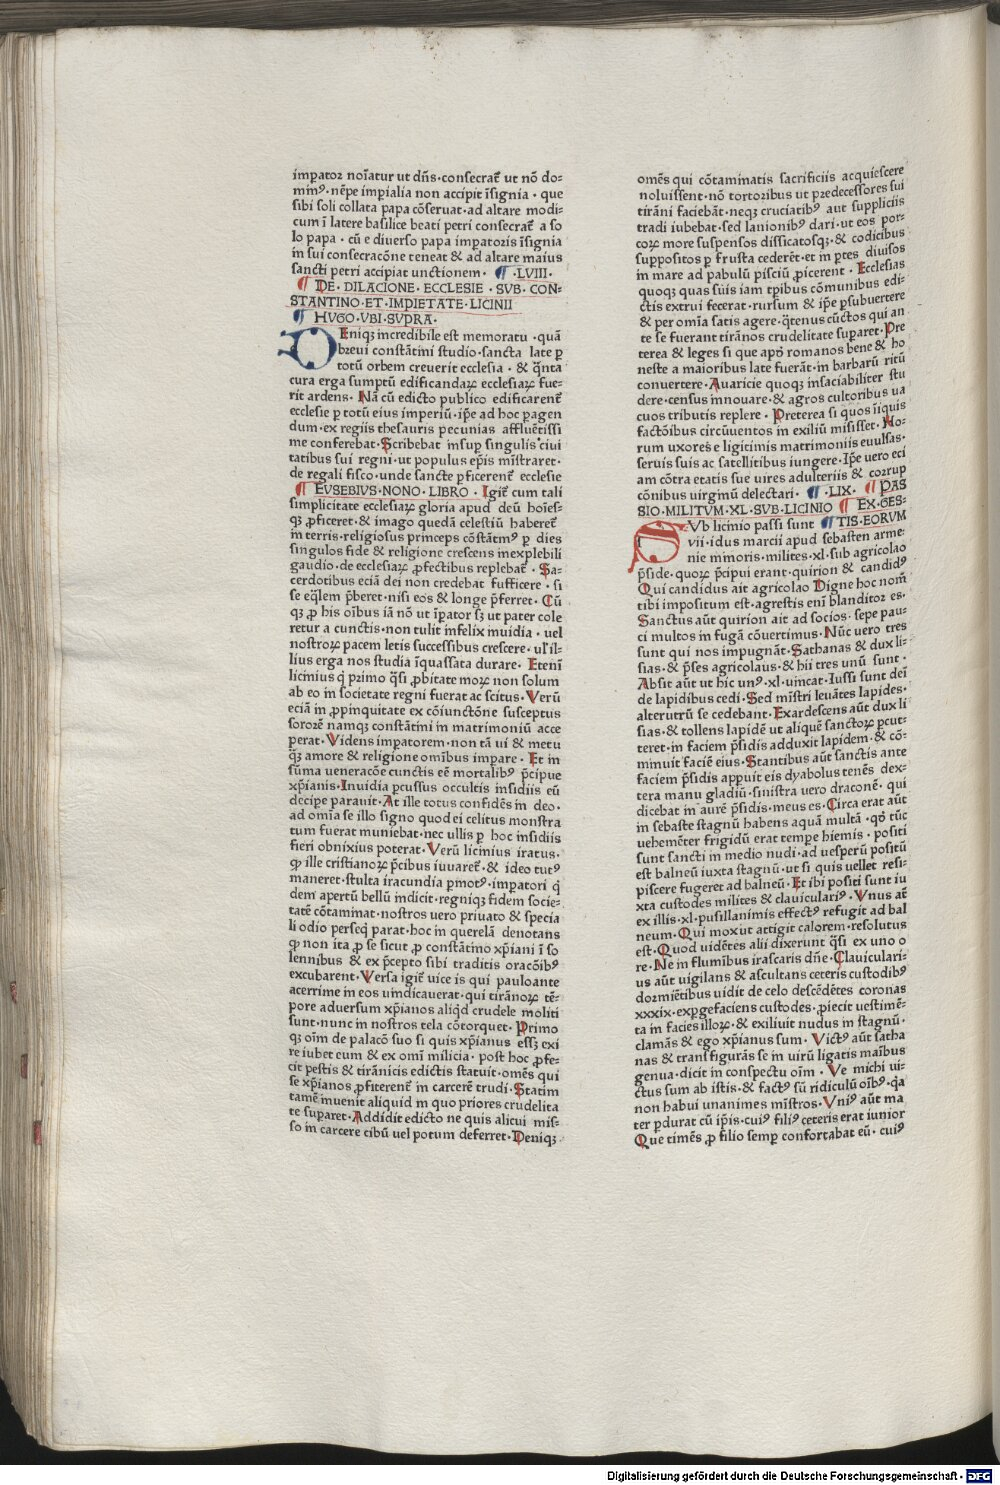 imperator noīatur ut dn̄s·consecrat᷑ ut nō do⸗
minꝰ·nēpe imꝑialia non accipit īsignia·que
sibi soli collata papa cōseruat·ad altare modi⸗
cum ī latere basilice beati petri consecrat᷑ a so
lo papa·cū e diuerso papa imꝑatoris īsignia
in sui consecracōne teneat & ad altare maius
sancti petri accipiat unctionem·¶·LVIII·
¶ DE·DILACIONE·ECCLESIE·SVB·CON⸗
STANTINO·ET·IMPIETATE·LICINII
¶ HVGO·VBI·SVPRA·
DEniqꝫ incredibile est memoratu·quā
breui constātini studio·sancta late ꝑ
totū orbem creuerit ecclesia·& q̄nta
cura erga sumptū edificandaꝝ ecclesiaꝝ fue⸗
rit ardens·Nā cū edicto publico edificarent᷑
ecclesie ꝑ totū eius imperiū·ip̄e ad hoc pagen
dum·ex regiis thesauris pecunias affluētissi
me conferebat·Scribebat insuꝑ singulis ciui
tatibus sui regni·ut populus ep̄is mīstraret·
de regali fisco·unde sancte ꝑficerent᷑ ecclesie
¶ EVSEBIVS·NONO·LIBRO·Igit᷑ cum tali
simplicitate ecclesiaꝝ gloria apud deū hoīes⸗
qꝫ ꝓficeret·& imago quedā celestiū haberet᷑
in terris·religiosus princeps cōstātinꝰ ꝑ dies
singulos fide & religione crescens inexplebili
gaudio·de ecclesiaꝝ ꝓfectibus replebat᷑·Sa⸗
cerdotibus eciā dei non credebat sufficere·si
se eq̄lem p̄beret·nisi eos & longe p̄ferret·Cū
qꝫ ꝓ his oībus iā nō ut īꝑator sꝫ ut pater cole
retur a cunctis·non tulit infelix inuidia·uel
nostroꝝ pacem letis successibus crescere·ul' il⸗
lius erga nos studia īquassata durare·Etenī
licinius q̇ primo q̄si ꝓbitate moꝝ non solum
ab eo in societate regni fuerat ac scitus·Verū
eciā in ꝓpinquitate ex cōiunctōne susceptus
sororē namqꝫ constātini in matrimoniū acce
perat·Videns imꝑatorem·non tā ui & metu
q̄ꝫ amore & religione omībus imꝑare·Et in
sūma ueneracōe cunctis eē mortalibꝰ p̄cipue
xp̄ianis·Inuidia ꝑcussus occultis insidiis eū
decipe parauit·At ille totus confidēs in deo·
ad omīa se illo signo quod ei celitus monstra
tum fuerat muniebat·nec ullis ꝑ hoc insidiis
fieri obnixius poterat·Verū licinius iratus·
ꝙ ille cristianoꝝ p̄cibus iuuaret᷑·& ideo tutꝰ
maneret·stulta iracundia ꝑmotꝰ·imꝑatori q̇
dem apertū bellū indicit·regniqꝫ fidem socie⸗
tatē cōtaminat·nostros uero priuato & specia
li odio perseq̇ parat·hoc in querelā denotans
ꝙ non ita ꝓ se sicut ꝓ constātino xp̄iani ī so
lennibus & ex p̄cepto sibi traditis oracōibꝰ
excubarent·Versa igit᷑ uice is qui pauloante
acerrime in eos uindicauerat·qui tirānoꝝ tē⸗
pore aduersum xp̄ianos aliq̇d crudele moliti
sunt·nunc in nostros tela cōtorquet·Primo
qꝫ oīm de palacō suo si quis xp̄ianus essꝫ exi
re iubet eum & ex omī milicia·post hoc ꝓfe⸗
cit pestis & tirānicis edictis statuit·omēs qui
se xp̄ianos ꝓfiterent᷑ in carcerē trudi·Statim
tamē inuenit aliquid in quo priores crudelita
te suꝑaret·Addidit edicto ne quis alicui mis⸗
so in carcere cibū uel potum deferret·Deniqꝫ
omēs qui cōtaminatis sacrificiis acquiescere
noluissent·nō tortoribus ut predecessores sui
tirāni faciebāt·neqꝫ cruciatibꝰ aut suppliciis
tradi iubebat·sed lanionibꝰ dari·ut eos por⸗
coꝝ more suspensos dissicatosqꝫ·& codicibus
suppositos ꝑ frusta cederēt·et in ꝑtes diuisos
in mare ad pabulū pisciū ꝓicerent·Ecclesias
quoqꝫ quas suis iam tꝑibus cōmunibus edi⸗
ctis extrui fecerat·rursum & ip̄e ꝑsubuertere
& per omīa satis agere·q̄tenus cūctos qui an
te se fuerant tirānos crudelitate suꝑaret·Pre
terea & leges si que apō romanos bene & ho
neste a maioribus late fuerāt·in barbarū ritū
conuertere·Auaricie quoqꝫ insaciabiliter stu
dere·census innouare·& agros cultoribus ua
cuos tributis replere·Preterea si quos īiquis
factōibus circūuentos in exiliū misisset·Ho⸗
rum uxores e ligitimis matrimoniis euulsas·
seruis suis ac satellitibus iungere·Ip̄e uero eci
am cōtra etatis sue uires adulteriis & corrup
cōnibus uirginū delectari·¶·LIX·¶ PAS
SIO·MILITVM·XL·SVB·LICINIO ¶ EX·GES⸗
SVb licinio passi sunt ¶ TIS·EORVM
vii·idus marcii apud sebasten arme⸗
nie minoris·milites·xl·sub agricolao
p̄side·quoꝝ p̄cipui erant·quirion & candidꝰ
Qui candidus ait agricolao Digne hoc nom̄
tibi impositum est·agrestis enī blanditor es·
Sanctus aūt quirion ait ad socios·sepe pau⸗
ci multos in fugā cōuertimus·Nūc uero tres
sunt qui nos impugnāt·Sathanas & dux li⸗
sias·& p̄ses agricolaus·& hii tres unū sunt·
Absit aūt ut hic unꝰ·xl·uincat·Iussi sunt dei
de lapidibus cedi·Sed mīstri leuātes lapides·
alterutrū se cedebant·Exardescens aūt dux li
sias·& tollens lapidē ut aliquē sanctoꝝ ꝑcut⸗
teret·in faciem p̄sidis adduxit lapidem·& cō⸗
minuit faciē eius·Stantibus aūt sanctis ante
faciem p̄sidis apꝑuit eis dyabolus tenēs dex⸗
tera manu gladiū·sinistra uero draconē·qui
dicebat in aurē p̄sidis·meus es·Circa erat aūt
in sebaste stagnū habens aquā multā·qđ tūc
uehemēter frigidū erat tempe hiemis·positi
sunt sancti in medio nudi·ad uesperū positū
est balneū iuxta stagnū·ut si quis uellet resi⸗
piscere fugeret ad balneū·Et ibi positi sunt iu
xta custodes milites & clauiculariꝰ·Vnus at̄
ex illis·xl·pusillanimis effectꝰ refugit ad bal
neum·Qui mox ut attigit calorem·resolutus
est·Quod uidētes alii dixerunt q̄si ex uno o
re·Ne in flumībus irascaris dn̄e·Clauiculari⸗
us aūt uigilans & ascultans ceteris custodibꝰ
dormiētibus uidit de celo descēdētes coronas
xxxix·exꝑgefaciens custodes·ꝓiecit uestimē⸗
ta in facies illoꝝ·& exiliuit nudus in stagnū·
clamās & ego xp̄ianus sum·Victꝰ aūt satha
nas & transfigurās se in uirū ligatis maībus
genua·dicit in conspectu oīm·Ve michi ui⸗
ctus sum ab istis·& factꝰ sū ridiculū oībꝰ·q̇a
non habui unanimes mīstros·Vniꝰ aūt ma
ter ꝑdurat cū ip̄is·cuiꝰ filiꝰ ceteris erat iunior
Que timēs ꝓ filio semꝑ confortabat eū·cuiꝰ
Digitalisierung gefördert durch die Deutsche Forschungsgemeinschaft - DFG